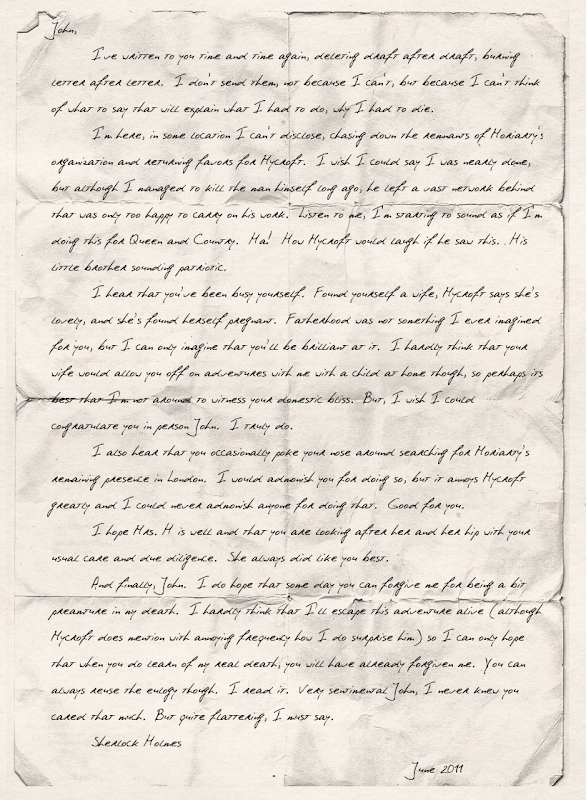 John,
I've written to you time and time again, deleting draft after draft, burning
letter after letter. I don't send them, not because I can't, but because I can't think
of what to say that will explain what I had to do, why I had to die.
I'm here, in some location I can't disclose, chasing down the remnants of Moriarty's
organization and returning favors for Mycroft. I wish I could say I was nearly done,
but although I managed to kill the man himself long ago, he left a vast network behind
that was only too happy to carry on his work. Listen to me, I'm starting to sound as if I'm
doing this for Queen and Country. Ha! How Mycroft would laugh if he saw this. His
little brother sounding patriotic.
I hear that you've been busy yourself. Found yourself a wife, Mycroft says she's
lovely, and she's found herself pregnant. Fatherhood was not something I ever imagined
for you, but I can only imagine that you'll be brilliant at it. I hardly think that your
wife would allow you off on adventures with me with a child at home though, so perhaps its
best that I'm not around to witness your domestic bliss. But, I wish I could
congratulate you in person John. I truly do.
I also hear that you occasionally poke your nose around searching for Moriarty's
remaining presence in London. I would admonish you for doing so, but it annoys Mycroft
greatly and I could never admonish anyone for doing that. Good for you.
I hope Mrs. H is well and that you are looking after her and her hip with your
usual care and due diligence. She always did like you best.
And finally, John. I do hope that some day you can forgive me for being a bit
premature in my death. I hardly think that I'll escape this adventure alive (although
Mycroft does mention with annoying frequency how I do surprise him) so I can only hope
that when you do learn of my real death, you will have already forgiven me. You can
always reuse the eulogy though. I read it. Very sentimental John, I never knew you
cared that much. But quite flattering, I must say.
Sherlock Holmes
June 2011